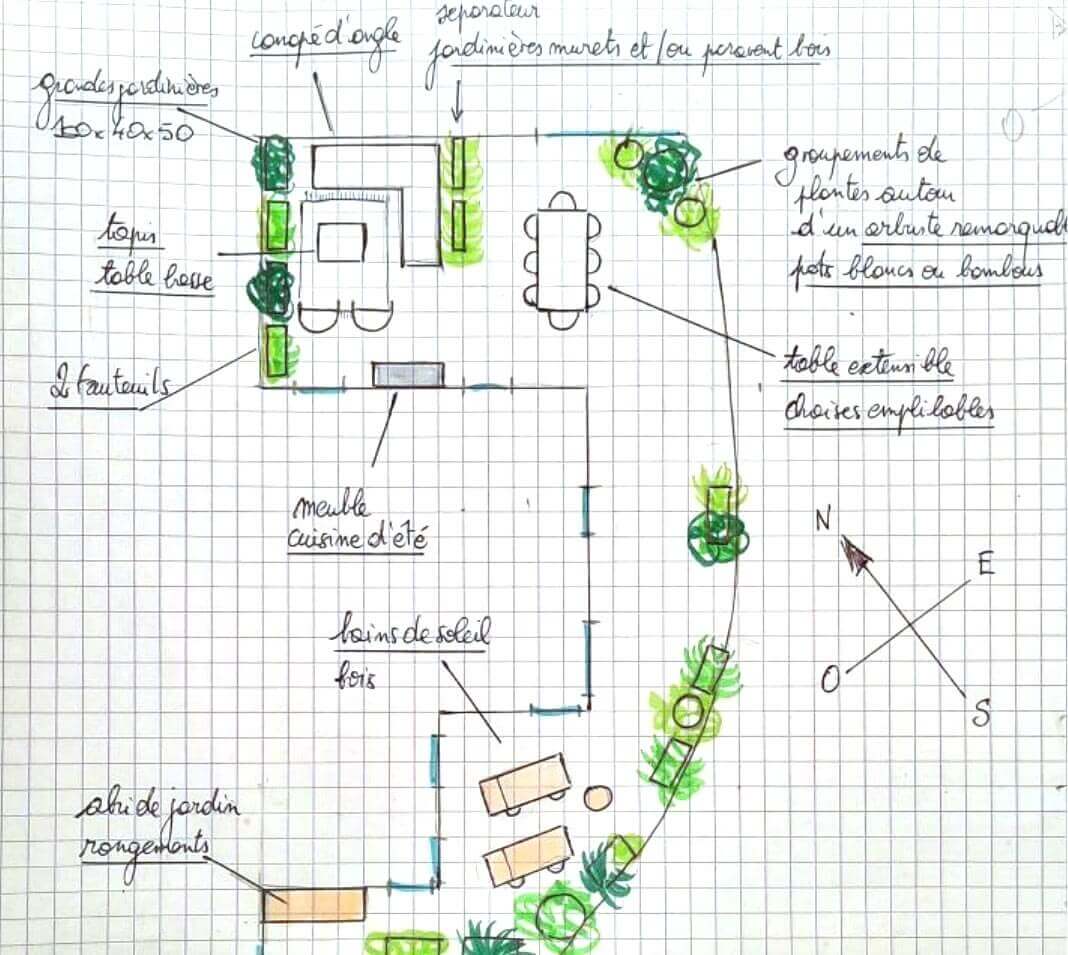 separateur
canapé d'angle
jardinières murets et/ou paravent bois
grandes jardinières
120x40x50
groupements de
plantes autour
d'un arbuste remarquabl
pots blancs ou bambous
tapis
table basse
table extensible
chaises empilables
2 fauteuils
meuble
cuisine d'été
N
E
O
S
bains de soleil
bois
abri de jardin
rangements